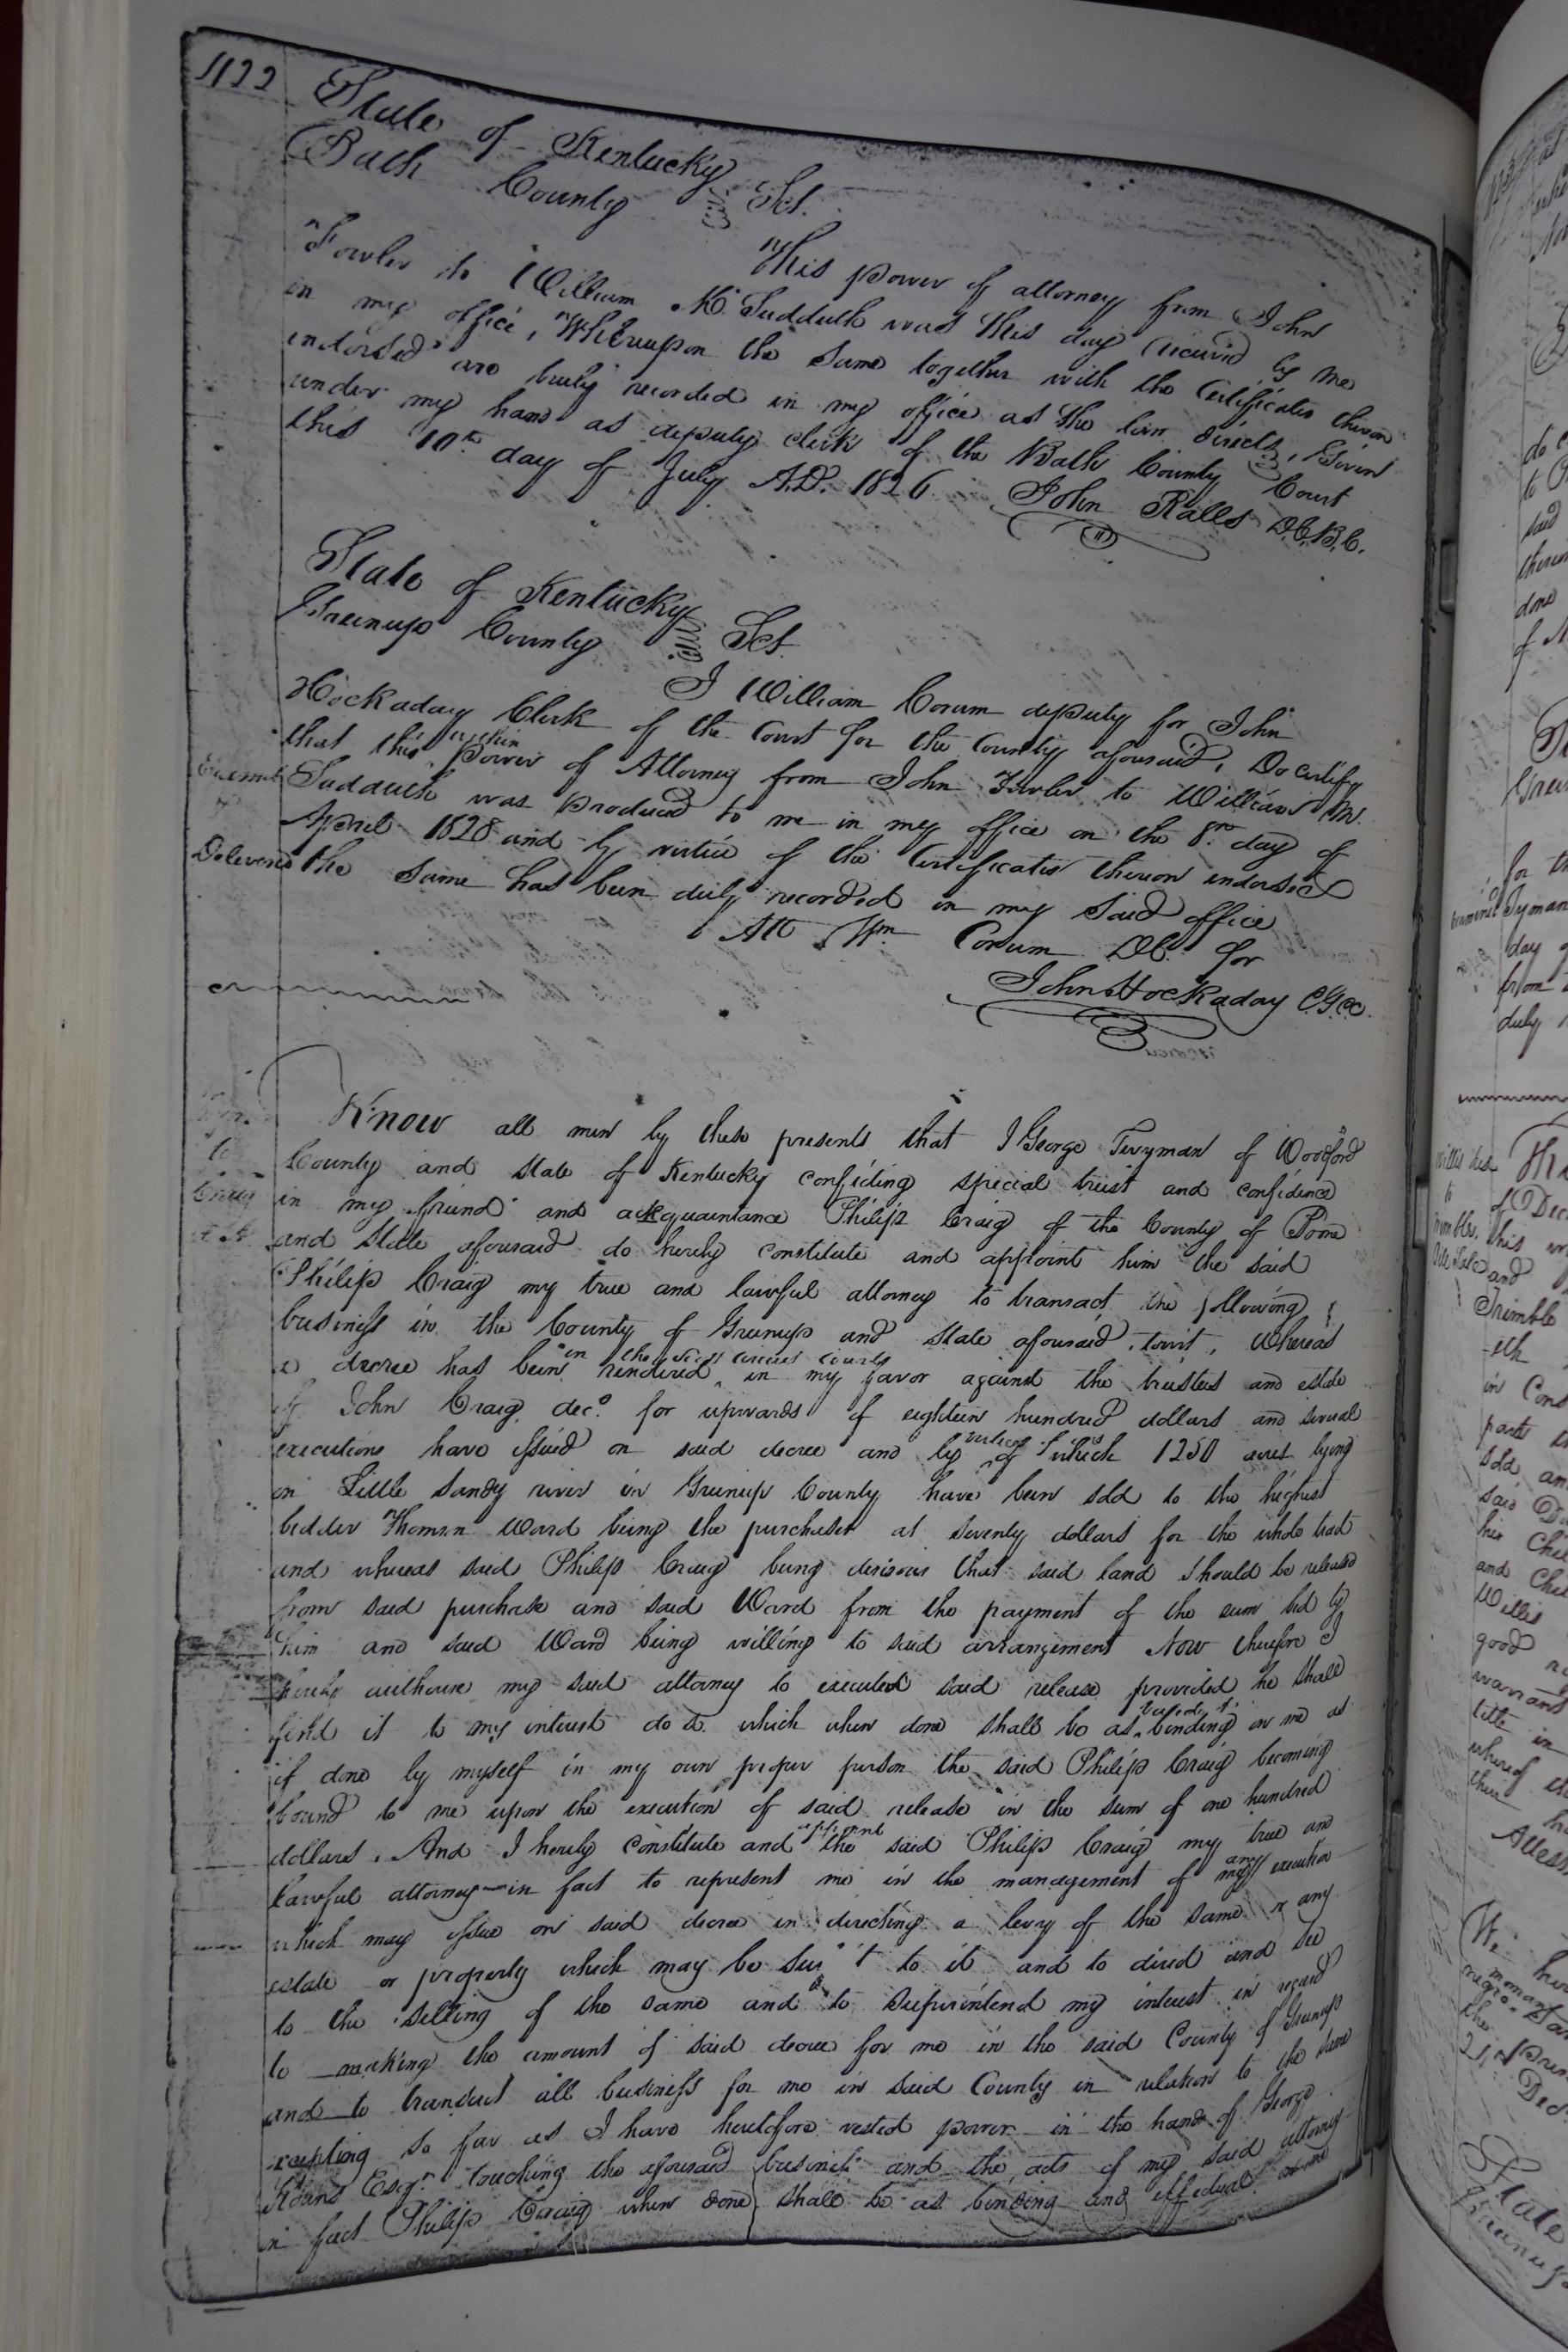 1122
State of Kentucky
Bath County Sct.
This power of attorney from John
Fowler to William M. Sudduth was this day received by me
in my office, Whereupon the same together with the Certificates thereon
endorsed are truly recorded in my office as the law directs, Given
under my hand as deputy clerk of the Bath County Court
this 10th day of July A.D. 1826 John Ralls D.C.B.C.
State of Kentucky
Greenup County Sct
I William Corum deputy for John
Hockaday Clerk of the Court for the County aforesaid, Do certify
that this within Power of Attorney from John Fowler to William M.
Sudduth was produced to me in my office on the 8th day of
April 1828 and by virtue of the Certificates thereon endorsed
the same has been duly recorded in my said office
Att Wm Corum DC. for
John Hockaday C.G.C.C.
Delivered
Know all men by these presents that I George Twyman of Woodford
County and state of Kentucky confiding special trust and confidence
in my friend and acquaintance Philip Craig of the County of Boone
and State aforesaid do hereby constitute and appoint him the said
Philip Craig my true and lawful attorney to transact the following
business in the County of Greenup and state aforesaid, towit, Whereas
a decree has been rendered in the circuit court in my favor against the trustees and estate
of John Craig decd for upwards of eighteen hundred dollars and several
executions have issued on said decree and by virtue of which 1250 acres lying
in Little Sandy river in Greenup County have been sold to the highest
bidder Thomson Ward being the purchaser at seventy dollars for the whole tract
and whereas said Philip Craig being desirous that said land should be released
from said purchase and said Ward from the payment of the sum bid by
him and said Ward being willing to said arrangement Now therefore I
hereby authorize my said attorney to executed said release provided he shall
find it to my interest do so which when done shall be as binding on me as
if done by myself in my own proper person the said Philip Craig becoming
bound to me upon the execution of said release in the sum of one hundred
dollars. And I hereby Constitute and appoint the said Philip Craig my true and
lawful attorney in fact to represent me in the management of any execution
which may issue on said decree in directing a levy of the same on any
estate or property which may be to it and to direct and see
to the selling of the same and to superintend my interest in regard
to making the amount of said decree for me in the said County of Greenup
and to transact all business for me in said County in relation to the same
excepting so far as I have heretofore vested power in the hands of George
Esqr. touching the aforesaid business and the acts of my said attorney
in fact Philip Craig when done shall be as binding and effectual on me